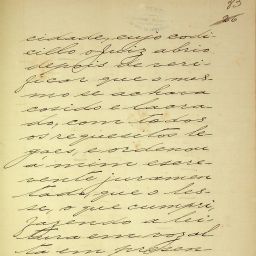 83
cidade, cujo codi
cillo o Juiz abrio
depois de veri
ficar que o mes
mo se achava
cosido e lacra
do, com todos
os requesitos le
gaes e ordenou
á mim escre
vente juramen
tado, que o les
se, o que cumpri,
fazendo a lei
tura em voz al
ta em presen